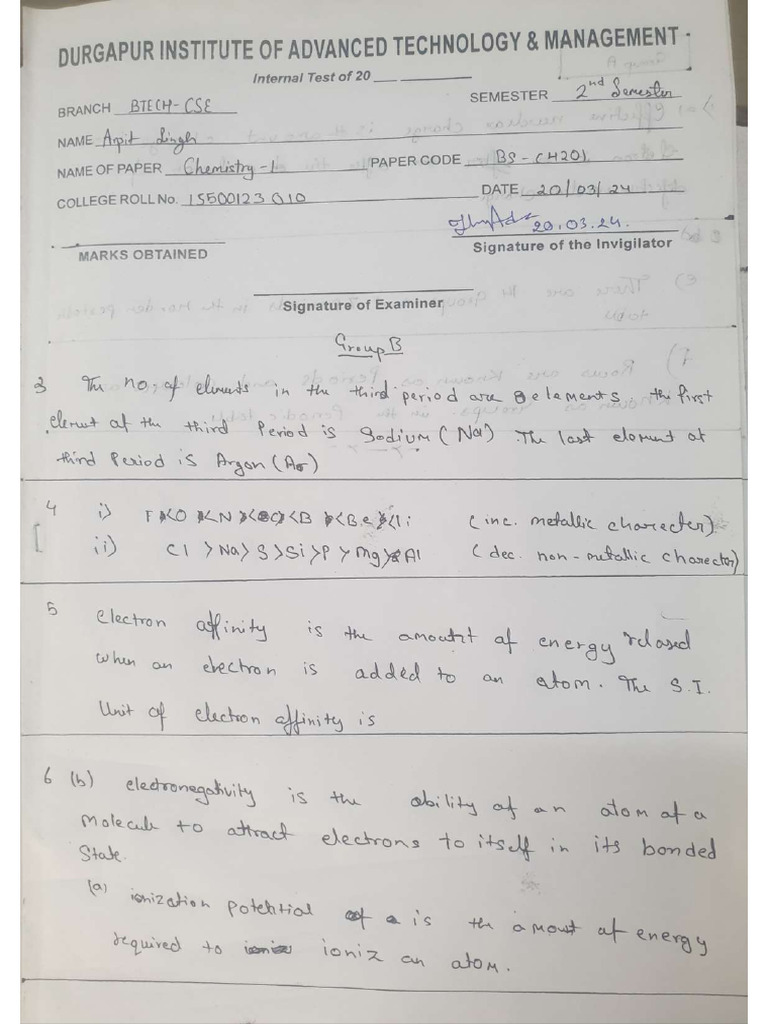 DURGAPUR INSTITUTE OF ADVANCED TECHNOLOGY & MANAGEMENT
Internal Test of 20 ___ ________
BRANCH BTECH-CSE SEMESTER 2nd Semester
NAME Arpit Singh
NAME OF PAPER Chemistry-1 PAPER CODE BS-CH201
COLLEGE ROLL No. 15500123010 DATE 20/03/24
20.03.24.
MARKS OBTAINED Signature of the Invigilator
Signature of Examiner
Group B
3 The no. of elements in the third period are 8 elements the first
element of the third Period is Sodium (Na) The last element of
third Period is Argon (Ar)
4 i) F<O<N<C<B<Be<Li (inc. metallic charecter)
ii) Cl >Na> S >Si>P > Mg>Al (dec. non-metallic charecter)
5 electron affinity is the amount of energy relased
when an electron is added to an atom. The S.I.
Unit of electron affinity is
6 (b) electronegativity is the ability of an atom of a
molecule to attract electrons to itself in its bonded
State.
(a) ionization potential is the amount of energy
required to ioniz an atom.